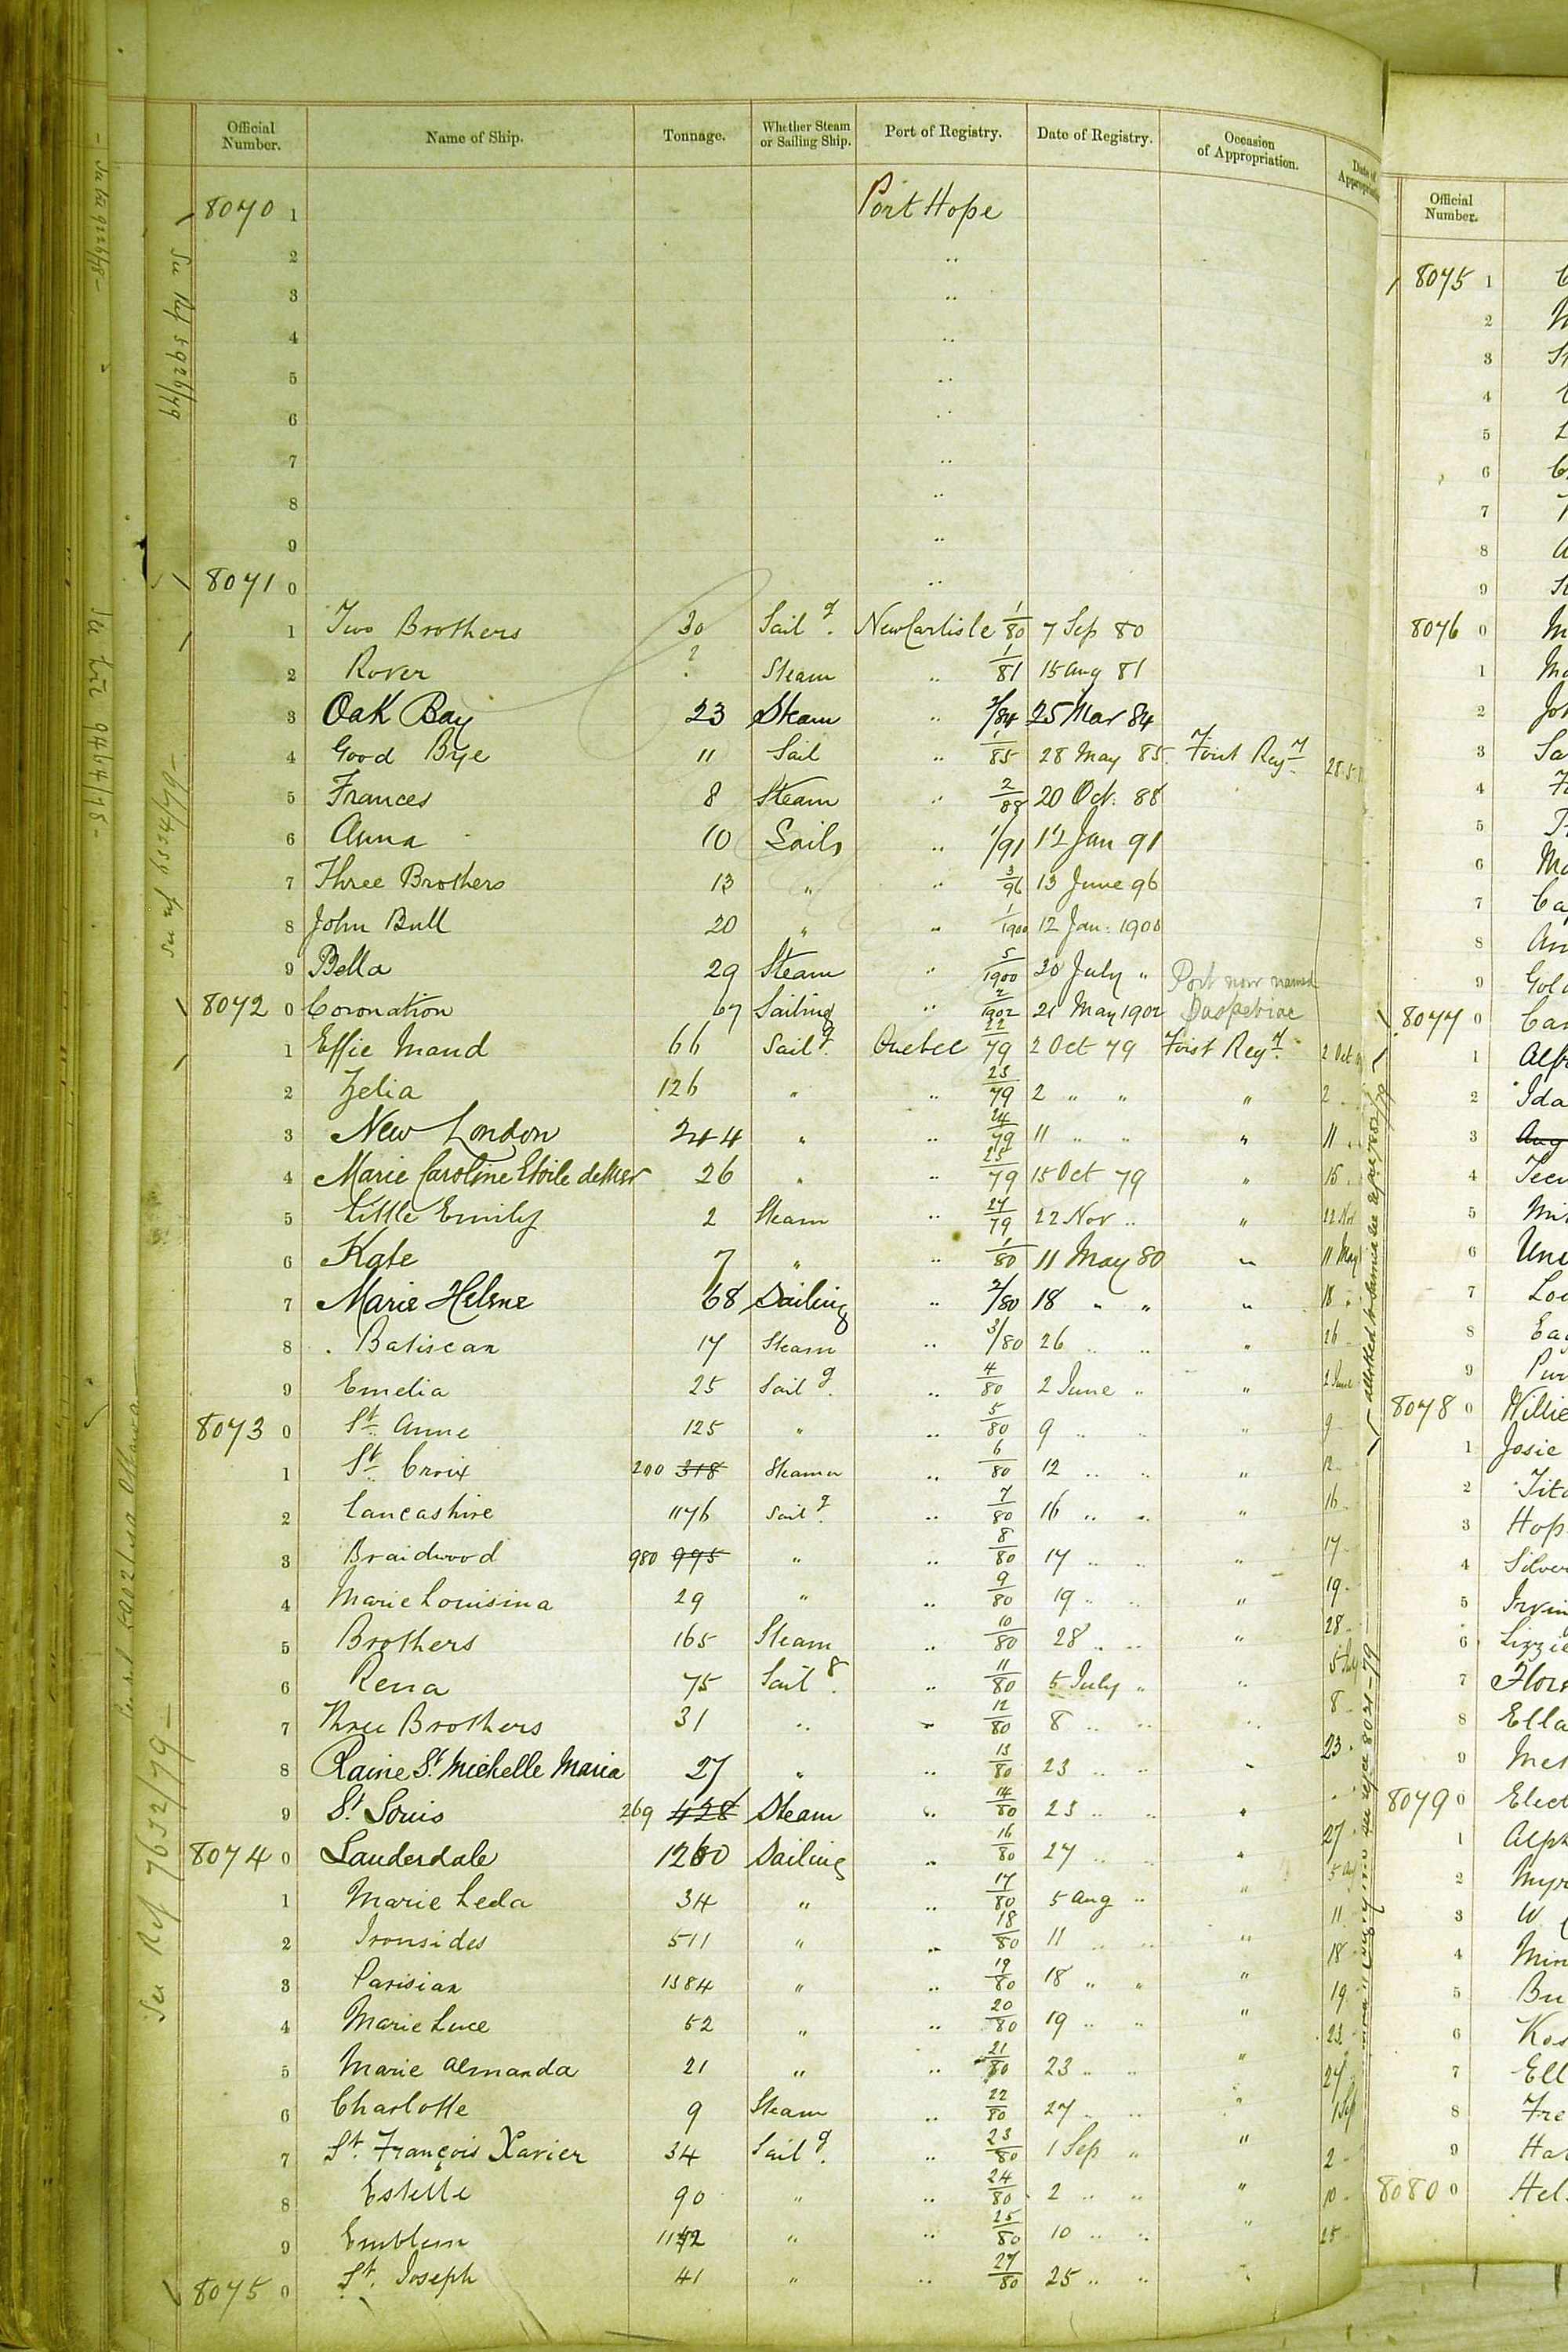 Official Number. Name of Ship. Tonnage. Whether Steam or Sailing Ship. Port of Registry. Date of Registry. Occasion of Appropriation. Date of
8070 1 Port Hope
2 ..
3 ..
4 ..
5 ..
6 ..
7 ..
8 ..
9 ..
8071 0 ..
1 Two Brothers 30 Sailg. New Carlisle 1/80 7 Sep 80
2 Rover ? Steam .. 1/81 15 Aug 81
3 Oak Bay 23 Steam .. 2/84 25 Mar 84
4 Good Bye 11 Sail .. 1/85 28 May 85. First Regy. 28.5
5 Frances 8 Steam .. 2/88 20 Oct. 88
6 Anna 10 Sails .. 1/91 12 Jan 91
7 Three Brothers 13 " .. 3/96 13 June 96
8 John Bull 20 " .. 1/1900 12 Jan. 1900
9 Bella 29 Steam .. 5/1900 30 July " Port now named
8072 0 Coronation 67 Sailing .. 2/1902 21 May 1902 Paspebiac
1 Effie Maud 66 Sailg. Quebec 22/79 2 Oct 79 First Regy. 2 Oct
2 Zelia 126 " .. 23/79 2 " " " 2
3 New London 244 " .. 24/79 11 " " " 11
4 Marie Caroline Etoile de Mer 26 " .. 25/79 15 Oct 79 " 15
5 Little Emily 2 Steam .. 27/79 22 Nov .. " 22 Nov
6 Kate 7 " .. 1/80 11 May 80 " 11 May
7 Marie Helene 68 Sailing .. 2/80 18 " " " 18
8 Batiscan 17 Steam .. 3/80 26 .. .. " 26
9 Emelia 25 Sailg. .. 4/80 2 June " " 2 June
8073 0 St. Anne 125 " .. 5/80 9 .. .. " 9
1 St. Croix 200 318 Steamer .. 6/80 12 .. .. " 12
2 Lancashire 1176 Sailg. .. 7/80 16 .. .. " 16
3 Braidwood 980 995 " .. 8/80 17 .. .. " 17
4 Marie Louisina 29 " .. 9/80 19 .. .. " 19
5 Brothers 165 Steam .. 10/80 28 .. .. " 28
6 Rena 75 Sailg. .. 11/80 5 July " " 5 July
7 Three Brothers 31 .. .. 12/80 8 .. .. " 8
8 Raine St. Michelle Maria 27 " .. 13/80 23 .. .. " 23
9 St. Louis 269 428 Steam .. 14/80 23 .. .. "
8074 0 Lauderdale 1260 Sailing .. 16/80 27 .. .. " 27
1 Marie Leda 34 " .. 17/80 5 Aug .. " 5 Aug
2 Ironsides 511 " .. 18/80 11 .. .. " 11
3 Parisian 1384 " .. 19/80 18 " " " 18
4 Marie Luce 52 " .. 20/80 19 .. .. " 19
5 Marie Almanda 21 " .. 21/80 23 .. .. " 23
6 Charlotte 9 Steam .. 22/80 27 .. .. " 27
7 St. François Xavier 34 Sailg. .. 23/80 1 Sep " " 1 Sep
8 Estelle 90 " .. 24/80 2 .. .. " 2
9 Emblem " .. 25/80 10 .. .. " 10
8075 0 St. Joseph 41 " .. 27/80 25 .. .. " 25
See Ref 5926/79
See ref 6534/79
See Ref 7632/79
Official Number.
8075 1
2
3
4
5
6
7
8
9
8076 0
1
2
3
4
5
6
7
8
9
8077 0
1
2 Ida
3
4
5
6
7
8
9
8078 0 Willie
1 Josie
2
3
4
5
6 Lizzie
7
8 Ella
9
8079 0
1
2
3 W
4
5
6
7
8
9
8080 0